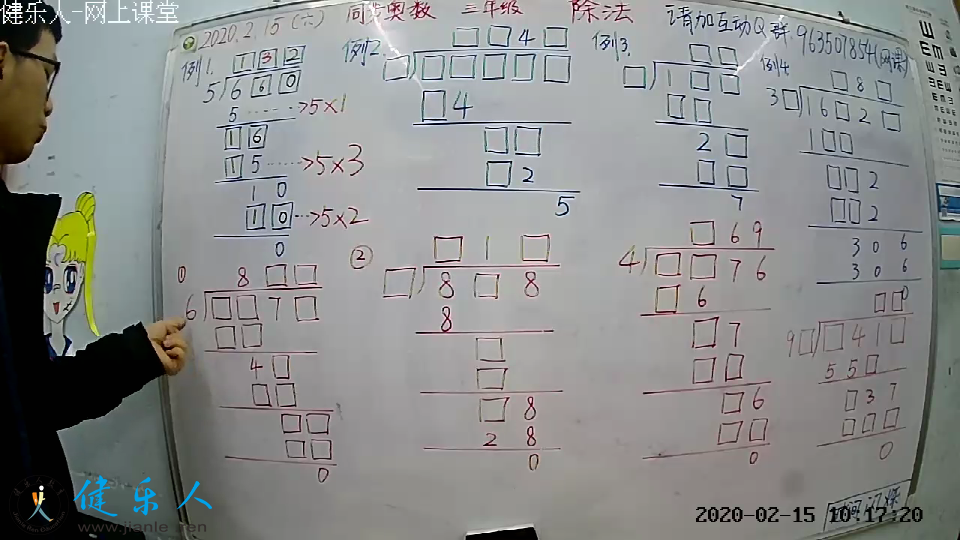 健乐人-网上课堂
2020.2.15 (六) 同步奥数 三年级 除法 请加互动Q群: 963507854(网课)
例1.
1 3 2
5 6 6 0
5 ······>5×1
1 6
1 5 ······>5×3
1 0
1 0 ···>5×2
0
例2.
□ □ 4 □
□ □ □ □ □ □
□ 4
□ □
□ 2
5
例3.
□ □
□ 1 □ □
□ □
2 □
□ □
7
例4
□ 8 □
3□ 1 6 □ 2 □
1 □ □
□ □ 2
□ □ 2
3 0 6
3 0 6
0
①
8 □ □
6 □ □ 7 □
□ □
4 □
□ □
□ □
□ □
0
②
□ 1 □
□ 8 □ 8
8
□
□
□ 8
2 8
0
□ 6 9
4 □ □ 7 6
□ 6
□ 7
□ □
□ 6
□ □
0
□ □
9□ □ 4 1 □
5 5 □
□ 3 7
□ □ □
0
健乐人
www.jianle.ren
2020-02-15 10:17:20